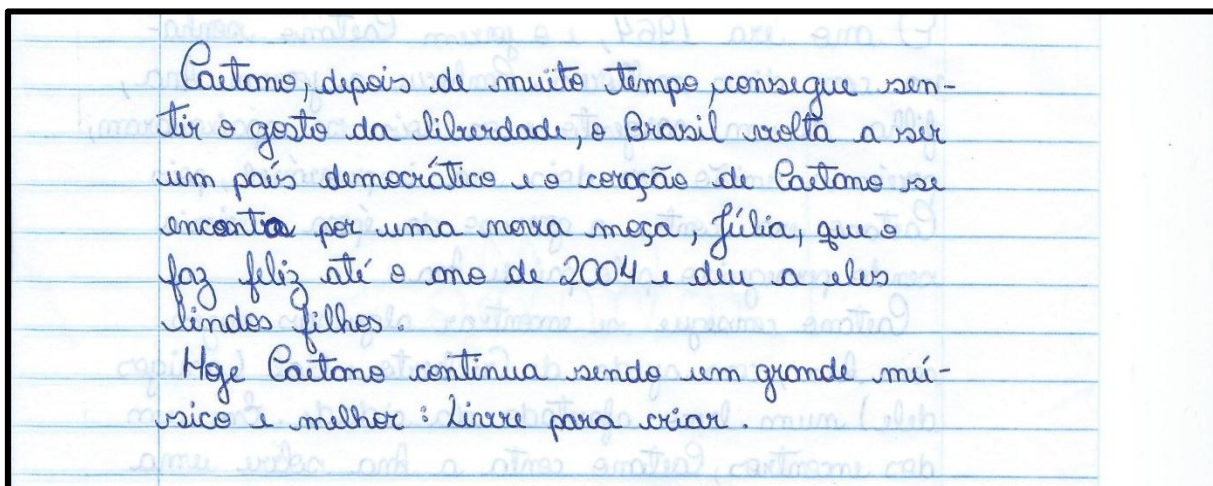 Caetano, depois de muito tempo, consegue sen-
tir o gosto da liberdade, o Brasil volta a ser
um país democrático e o coração de Caetano se
encanta por uma nova moça, Júlia, que o
faz feliz até o ano de 2004 e deu a eles
lindos filhos.
Hoje Caetano continua sendo um grande mú-
sico e melhor: Livre para criar.